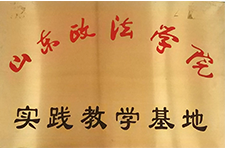 山东政法学院
实践教学基地